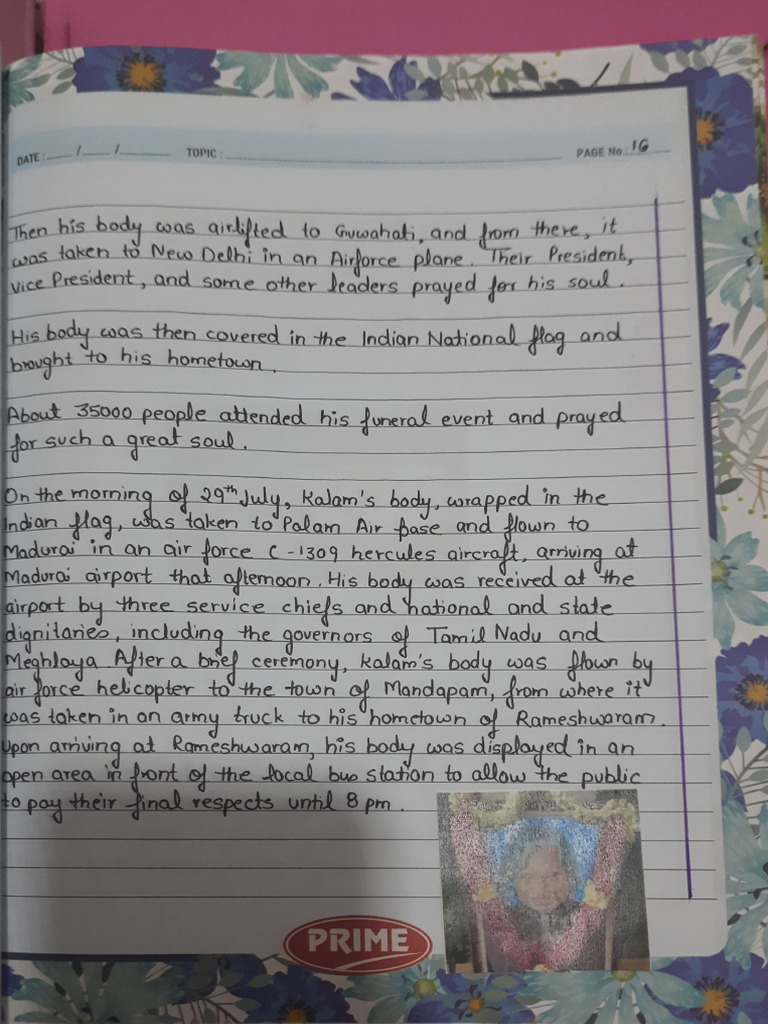 DATE : ___ / ___ / ______ TOPIC : PAGE No : 16
Then his body was airlifted to Guwahati, and from there, it
was taken to New Delhi in an Airforce plane. Their President,
vice President, and some other leaders prayed for his soul.
His body was then covered in the Indian National flag and
brought to his hometown.
About 35000 people attended his funeral event and prayed
for such a great soul.
On the morning of 29th July, Kalam's body, wrapped in the
Indian flag, was taken to Palam Air base and flown to
Madurai in an air force C-1309 hercules aircraft, arriving at
Madurai airport that afternoon. His body was received at the
airport by three service chiefs and national and state
dignitaries, including the governors of Tamil Nadu and
Meghlaya After a brief ceremony, Kalam's body was flown by
air force helicopter to the town of Mandapam, from where it
was taken in an army truck to his hometown of Rameshwaram.
Upon arriving at Rameshwaram, his body was displayed in an
open area in front of the local bus station to allow the public
to pay their final respects until 8 pm.
PRIME